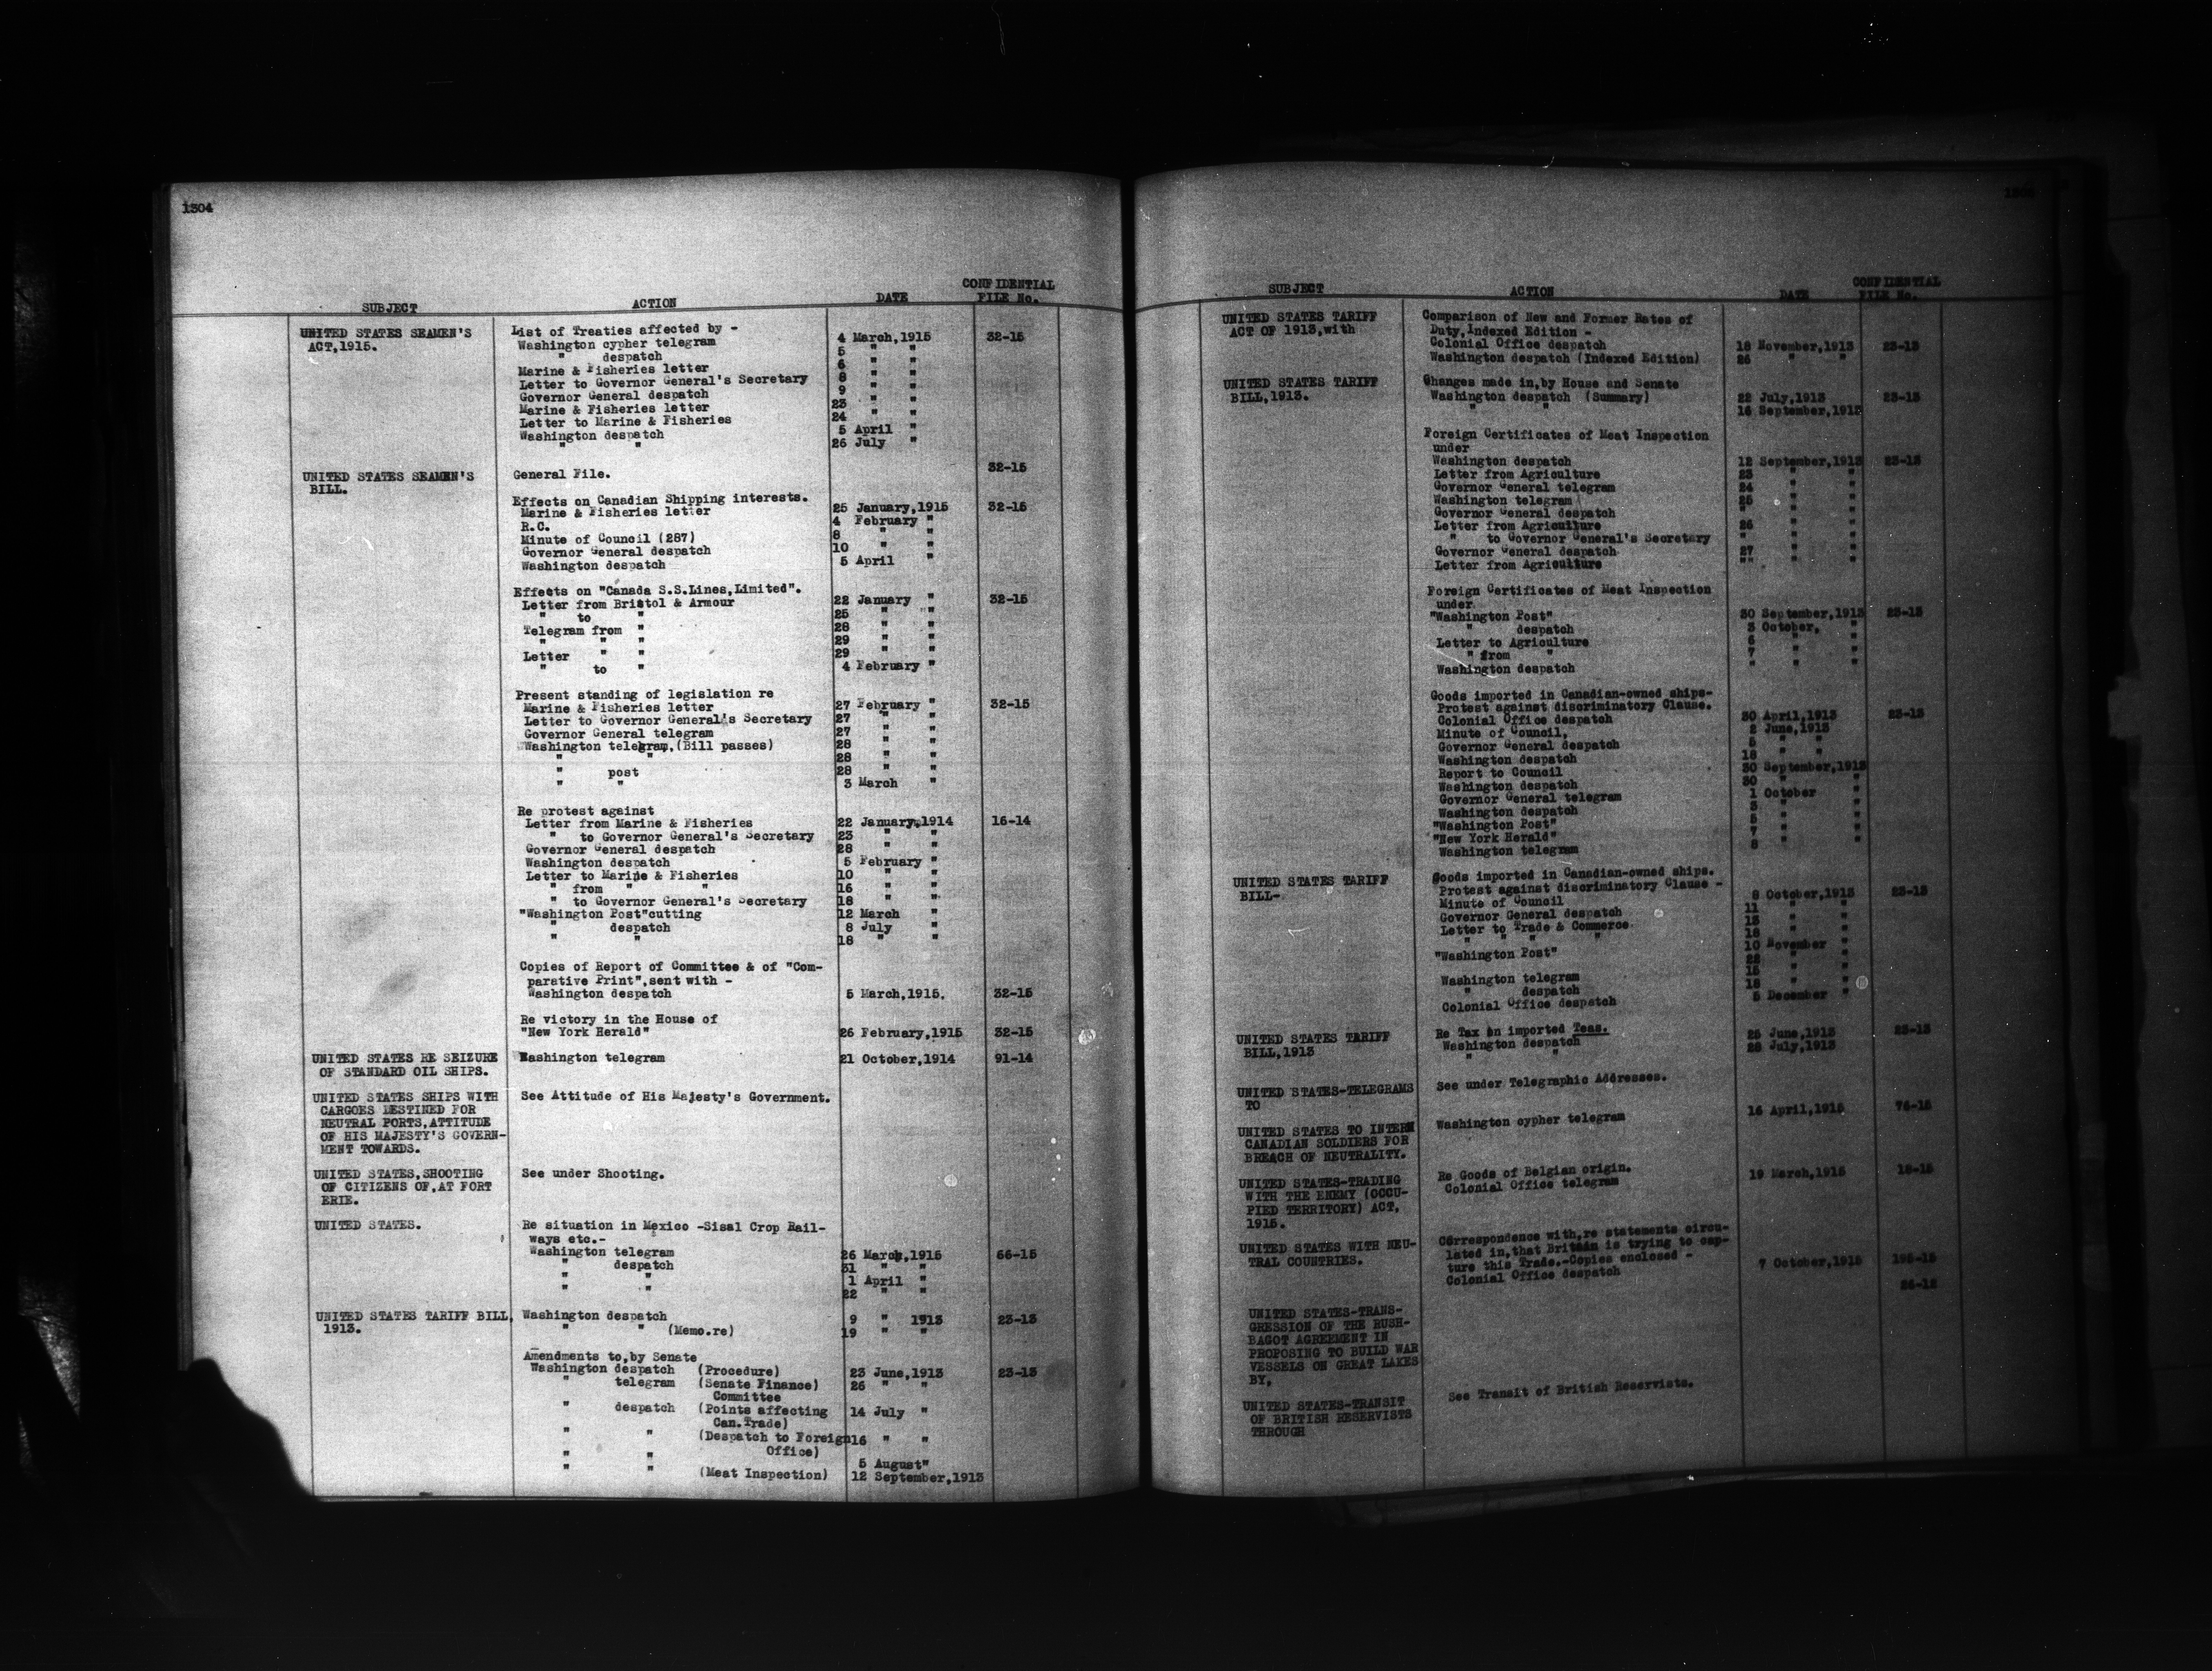 1304
SUBJECT ACTION DATE CONFIDENTIAL FILE No.
UNITED STATES SEAMEN'S List of Treaties affected by -
ACT,1915. Washington cypher telegram 4 March,1915 32-15
" despatch 5 " "
Marine & Fisheries letter 6 " "
Letter to Governor General's Secretary 8 " "
Governor General despatch 9 " "
Marine & Fisheries letter 23 " "
Letter to Marine & Fisheries 24 " "
Washington despatch 5 April "
" " 26 July "
UNITED STATES SEAMEN'S General File. 32-15
BILL.
Effects on Canadian Shipping interests.
Marine & Fisheries letter 25 January,1915 32-15
R.C. 4 February "
Minute of Council (287) 8 " "
Governor General despatch 10 " "
Washington despatch 5 April "
Effects on "Canada S.S.Lines,Limited".
Letter from Bristol & Armour 22 January " 32-15
" to " 25 " "
Telegram from " 28 " "
" " " 29 " "
Letter " " 29 " "
" to " 4 February "
Present standing of legislation re
Marine & Fisheries letter 27 February " 32-15
Letter to Governor General's Secretary 27 " "
Governor General telegram 27 " "
Washington telegram,(Bill passes) 28 " "
" " 28 " "
" post 28 " "
" " 3 March "
Re protest against
Letter from Marine & Fisheries 22 January,1914 16-14
" to Governor General's Secretary 23 " "
Governor General despatch 28 " "
Washington despatch 5 February "
Letter to Marine & Fisheries 10 " "
" from " " 16 " "
" to Governor General's Secretary 18 " "
"Washington Post"cutting 12 March "
" despatch 8 July "
" " 18 " "
Copies of Report of Committee & of "Com-
parative Print",sent with -
Washington despatch 5 March,1915. 32-15
Re victory in the House of
"New York Herald" 26 February,1915 32-15
UNITED STATES RE SEIZURE Washington telegram 21 October,1914 91-14
OF STANDARD OIL SHIPS.
UNITED STATES SHIPS WITH See Attitude of His Majesty's Government.
CARGOES DESTINED FOR
NEUTRAL PORTS,ATTITUDE
OF HIS MAJESTY'S GOVERN-
MENT TOWARDS.
UNITED STATES,SHOOTING See under Shooting.
OF CITIZENS OF,AT FORT
ERIE.
UNITED STATES. Re situation in Mexico -Sisal Crop Rail-
ways etc.-
Washington telegram 26 March,1915 66-15
" despatch 31 " "
" " 1 April "
" " 22 " "
UNITED STATES TARIFF BILL, Washington despatch 9 " 1913 23-13
1913. " " (Memo.re) 19 " "
Amendments to,by Senate
Washington despatch (Procedure) 23 June,1913 23-13
" telegram (Senate Finance) 26 " "
Committee
" despatch (Points affecting 14 July "
Can.Trade)
" " (Despatch to Foreign 16 " "
Office)
" " 5 August"
" " (Meat Inspection) 12 September,1913
SUBJECT ACTION DATE CONFIDENTIAL FILE No.
UNITED STATES TARIFF Comparison of New and Former Rates of
ACT OF 1913,with Duty,Indexed Edition -
Colonial Office despatch 18 November,1913 23-13
Washington despatch (Indexed Edition) 26 " "
UNITED STATES TARIFF Changes made in,by House and Senate
BILL,1913. Washington despatch (Summary) 22 July,1913 23-13
" " 16 September,1913
Foreign Certificates of Meat Inspection
under
Washington despatch 12 September,1913 23-13
Letter from Agriculture 23 " "
Governor General telegram 24 " "
Washington telegram 25 " "
Governor General despatch " " "
Letter from Agriculture 26 " "
" to Governor General's Secretary " " "
Governor General despatch 27 " "
Letter from Agriculture "" " "
Foreign Certificates of Meat Inspection
under
"Washington Post" 30 September,1913 23-13
" despatch 3 October, "
Letter to Agriculture 6 " "
" from " 7 " "
Washington despatch " " "
Goods imported in Canadian-owned ships-
Protest against discriminatory Clause.
Colonial Office despatch 30 April,1913 23-13
Minute of Council, 2 June,1913
Governor General despatch 5 " "
Washington despatch 18 " "
Report to Council 30 September,1913
Washington despatch 30 " "
Governor General telegram 1 October "
Washington despatch 3 " "
"Washington Post" 5 " "
"New York Herald" 7 " "
Washington telegram 8 " "
UNITED STATES TARIFF Goods imported in Canadian-owned ships.
BILL- Protest against discriminatory Clause -
Minute of Council 8 October,1913 23-13
Governor General despatch 11 " "
Letter to Trade & Commerce 13 " "
" " " " 18 " "
"Washington Post" 10 November "
22 " "
Washington telegram 15 " "
" despatch 18 " "
Colonial Office despatch 5 December "
UNITED STATES TARIFF Re Tax on imported Teas.
BILL,1913 Washington despatch 25 June,1913 23-13
" " 28 July,1913
UNITED STATES-TELEGRAMS See under Telegraphic Addresses.
TO
UNITED STATES TO INTERN Washington cypher telegram 16 April,1915 76-15
CANADIAN SOLDIERS FOR
BREACH OF NEUTRALITY.
UNITED STATES-TRADING Re Goods of Belgian origin.
WITH THE ENEMY (OCCU- Colonial Office telegram 19 March,1915 18-15
PIED TERRITORY) ACT,
1915.
UNITED STATES WITH NEU- Correspondence with,re statements circu-
TRAL COUNTRIES. lated in,that Britain is trying to cap-
ture this Trade.-Copies enclosed -
Colonial Office despatch 7 October,1915 195-15
26-12
UNITED STATES-TRANS-
GRESSION OF THE RUSH-
BAGOT AGREEMENT IN
PROPOSING TO BUILD WAR
VESSELS ON GREAT LAKES
BY,
UNITED STATES-TRANSIT See Transit of British Reservists.
OF BRITISH RESERVISTS
THROUGH